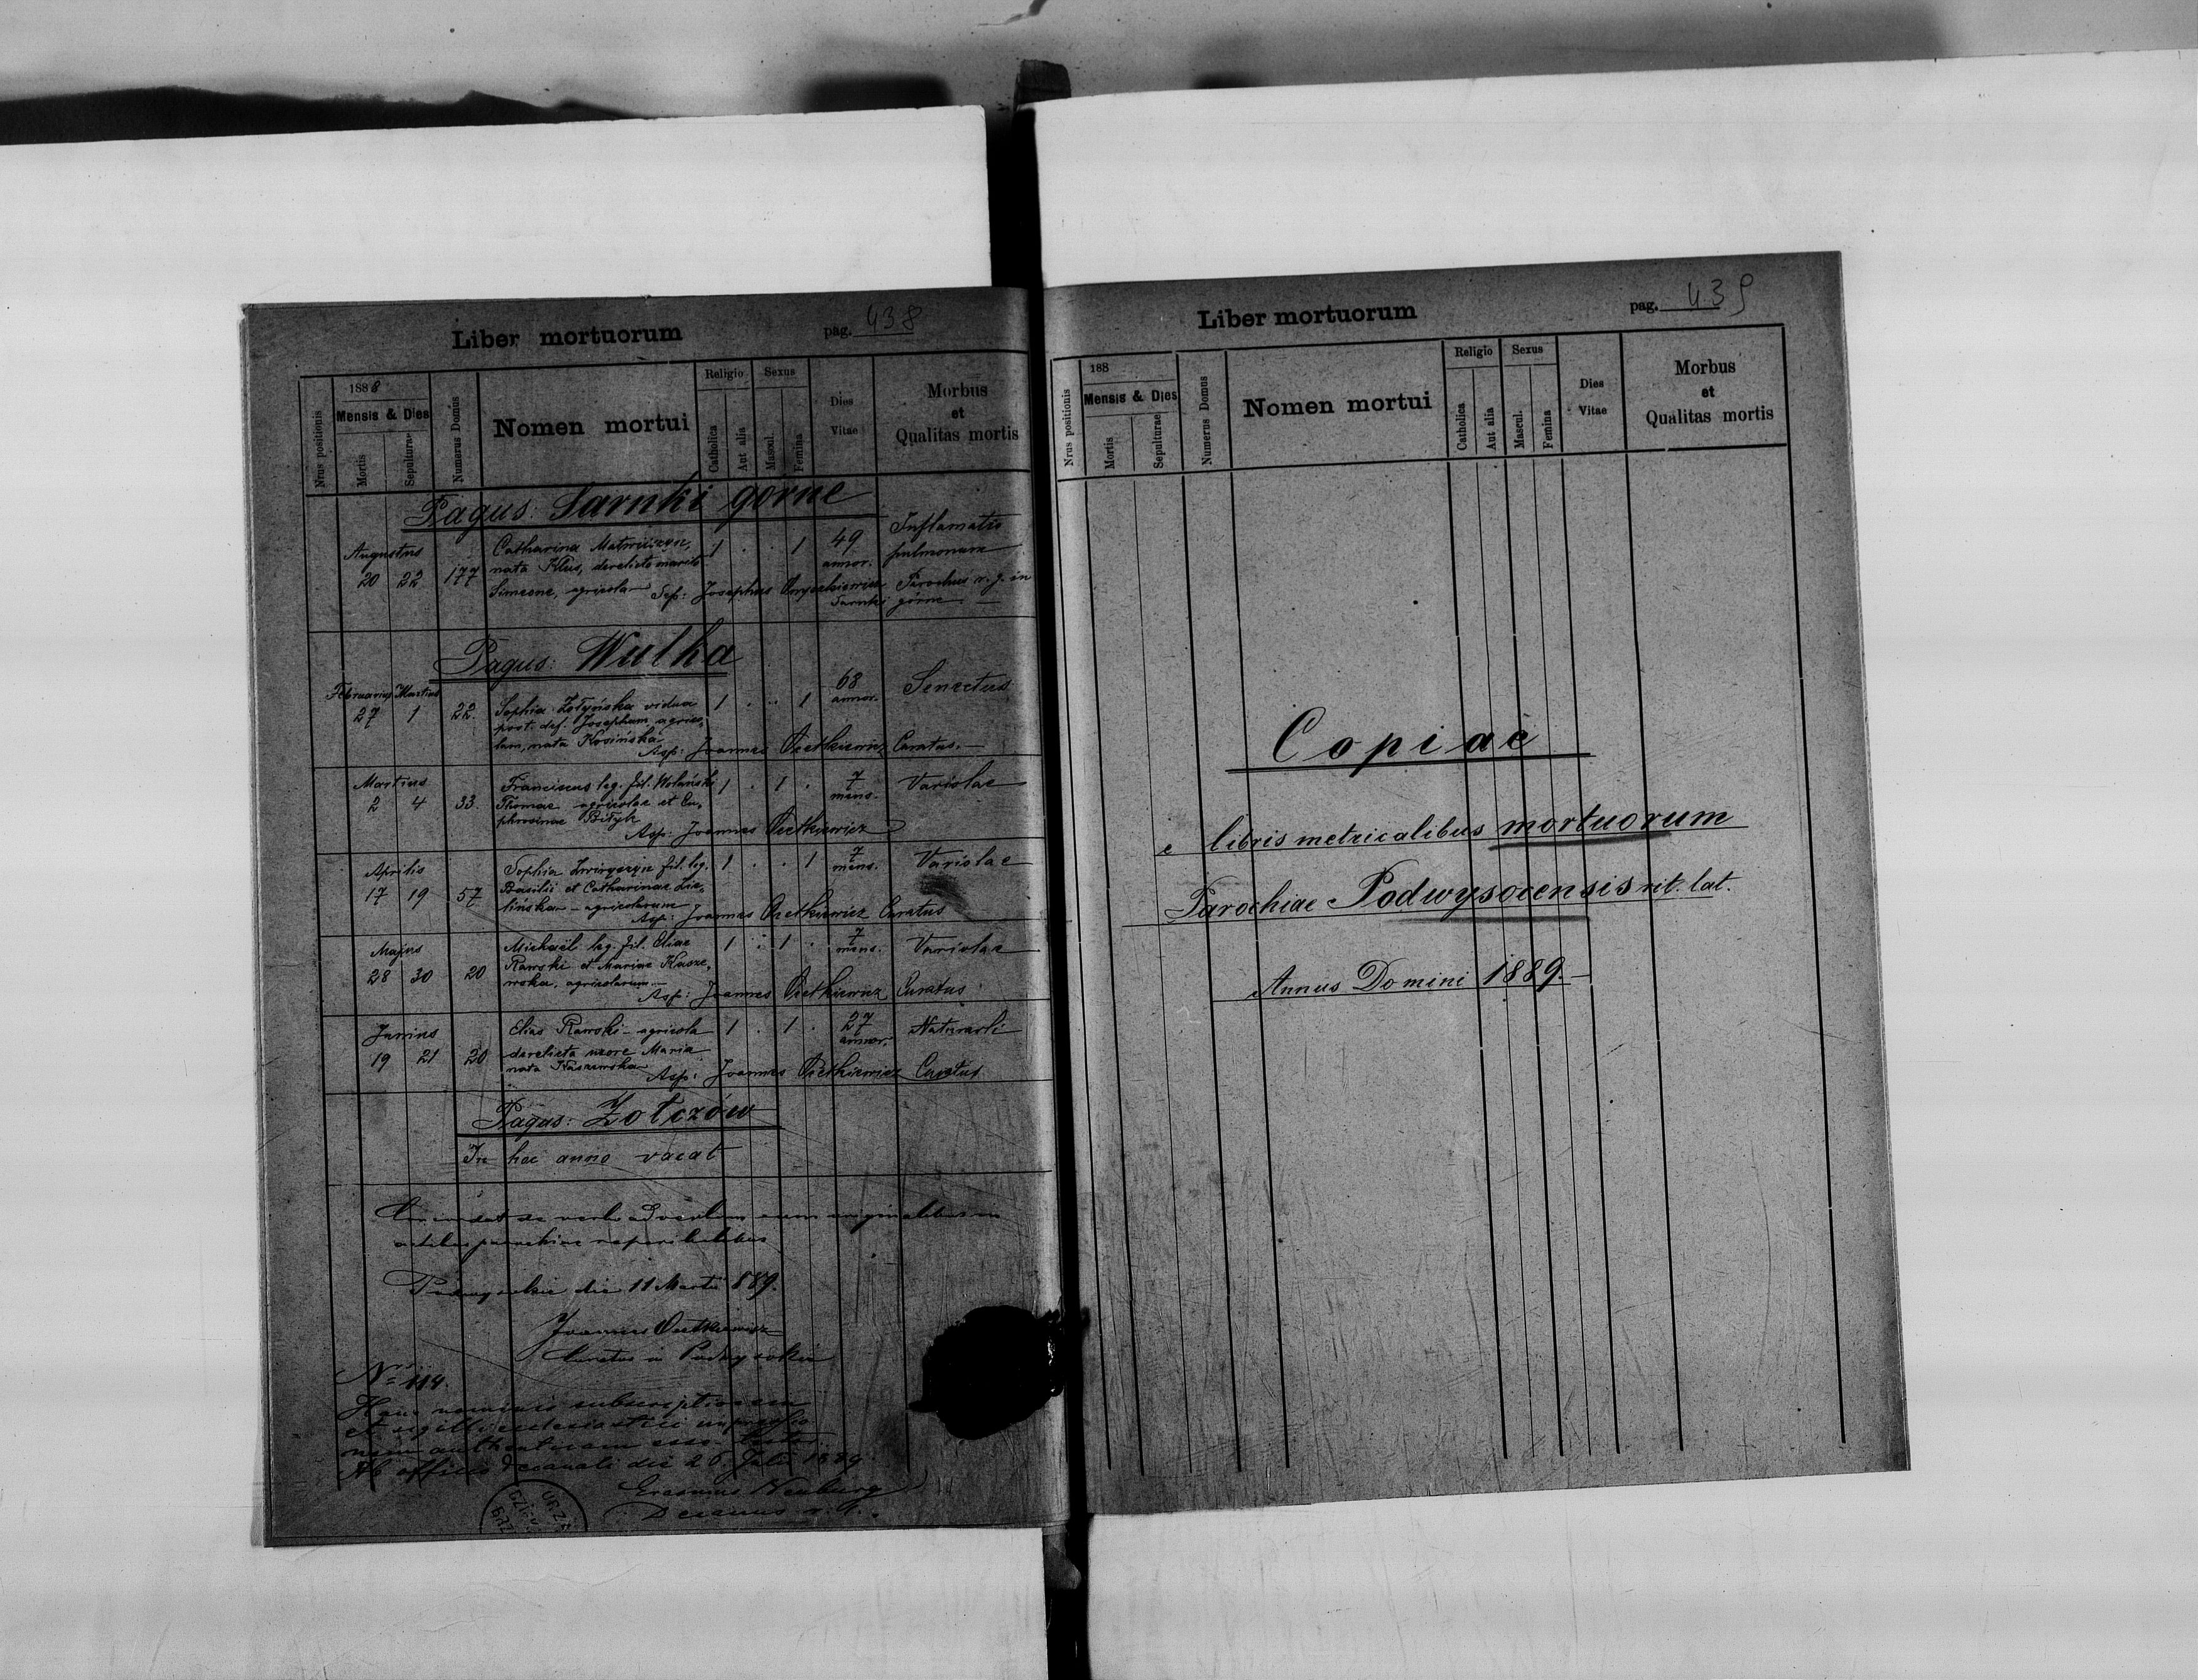 Liber mortuorum
pag. 438
Nrus positionis
1888
Mensis & Dies
Mortis
Sepulturae
Numerus Domus
Nomen mortui
Religio
Catholica
Aut alia
Sexus
Mascul.
Femina
Dies
Vitae
Morbus
et
Qualitas mortis
Pagus: Sarnki gorne
Augustus
20 22 177
Catharina
nata Klus, derelicto marito
Simeone, agricola
1 . . 1
49
annor.
Inflamatio
pulmonum
Sep: Josephus Parochus r. g. in
Sarnki górne —
Pagus: Wulka
Februarius Martius
27 1 22.
Sophia vidua
post. def. Josephum agrico-
lam, nata Kosińska
1 . . 1
68
annor.
Senectus
Asp: Joannes Ocetkiewicz Curatus. —
Martius
2 4 33.
Franciscus leg. fil. Wolański
Thomae agricolae et Eu-
phrosinae Bityk
1 . 1 .
7
mens.
Variolae
Asp: Joannes Ocetkiewicz
Aprilis
17 19 57
Sophia fil. leg.
Basilii et Catharinae Zie-
lińska – agricolarum
1 . . 1
7
mens.
Variolae
Asp: Joannes Ocetkiewicz Curatus
Majus
28 30 20
Michaël leg. fil. Eliae
Rawski et Mariae Kasze-
wska, agricolarum —
1 . 1 .
7
mens.
Variolae
Asp: Joannes Ocetkiewicz Curatus
Junius
19 21 20
Elias Rawski – agricola
derelicta uxore Maria
nata Kaszewska
1 . 1 .
27
annor.
Naturali
Asp: Joannes Ocetkiewicz Curatus
Pagus: Żołczów
In hoc anno vacat
de verbo ad verbum cum originalibus in
actibus parochiae reperibilibus
die 11 Martii 889.
Joannes Ocetkiewicz
Curatus
Nº 114.
Hanc nominis subscriptionem
et sigilli ecclesiastici
authenticam esse
Ab officio Decanali die 20. 1889.
Erasmus Neuburg
Decanus
Liber mortuorum
pag. 439
Nrus positionis
188
Mensis & Dies
Mortis
Sepulturae
Numerus Domus
Nomen mortui
Religio
Catholica
Aut alia
Sexus
Mascul.
Femina
Dies
Vitae
Morbus
et
Qualitas mortis
Copiae
e libris metricalibus mortuorum
Parochiae Podwysocensis rit. lat.
Annus Domini 1889. —